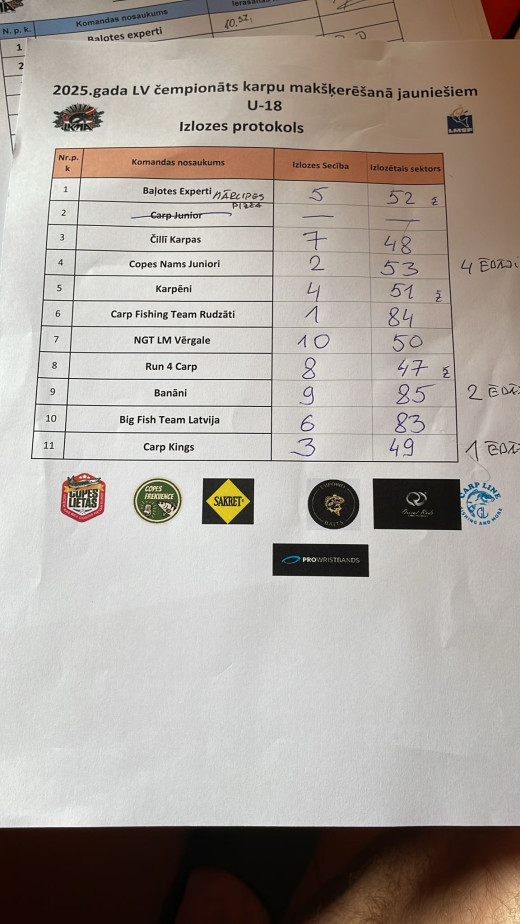 N. p. k. Komandas nosaukums
1 Baļotes experti 10.52,
2
2025.gada LV čempionāts karpu makšķerēšanā jauniešiem
U-18
Izlozes protokols
LMSF
Nr.p.k Komandas nosaukums Izlozes Secība Izlozētais sektors
1 Baļotes Experti MĀRCIPES PIZĒA 5 52 z
2 Carp Junior — —
3 Čillī Karpas 7 48
4 Copes Nams Juniori 2 53
5 Karpēni 4 51 z
6 Carp Fishing Team Rudzāti 1 84
7 NGT LM Vērgale 10 50
8 Run 4 Carp 8 47 z
9 Banāni 9 85
10 Big Fish Team Latvija 6 83
11 Carp Kings 3 49
COPES LIETAS
COPES FREKVENCE
SAKRET
BAITS
CARP LINE
FISHING AND MORE
PROWRISTBANDS